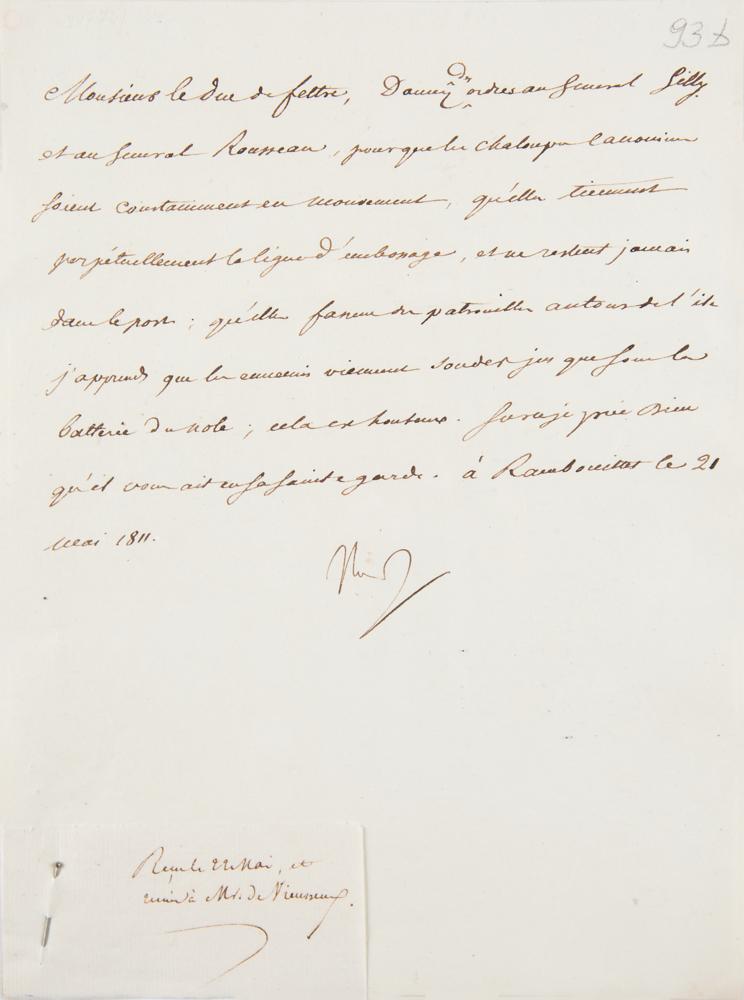 93 b
Monsieur le Duc de feltre, Donnez des ordres au General Gilly
et au General Rousseau, pour que les chaloupes canonnieres
soient constamment en mouvement, qu'elles tiennent
perpétuellement la ligne d'embossage, et ne restent jamais
dans le port ; qu'elles fassent des patrouilles autour de l'isle
j'apprends que les ennemis viennent sonder jusque sous la
batterie du Nole ; cela est honteux. Sur ce je prie Dieu
qu'il vous ait en sa sainte garde. à Rambouillet le 21
mai 1811.
Reçu le 22 Mai, et
remis à Mr. de Vieusseux.